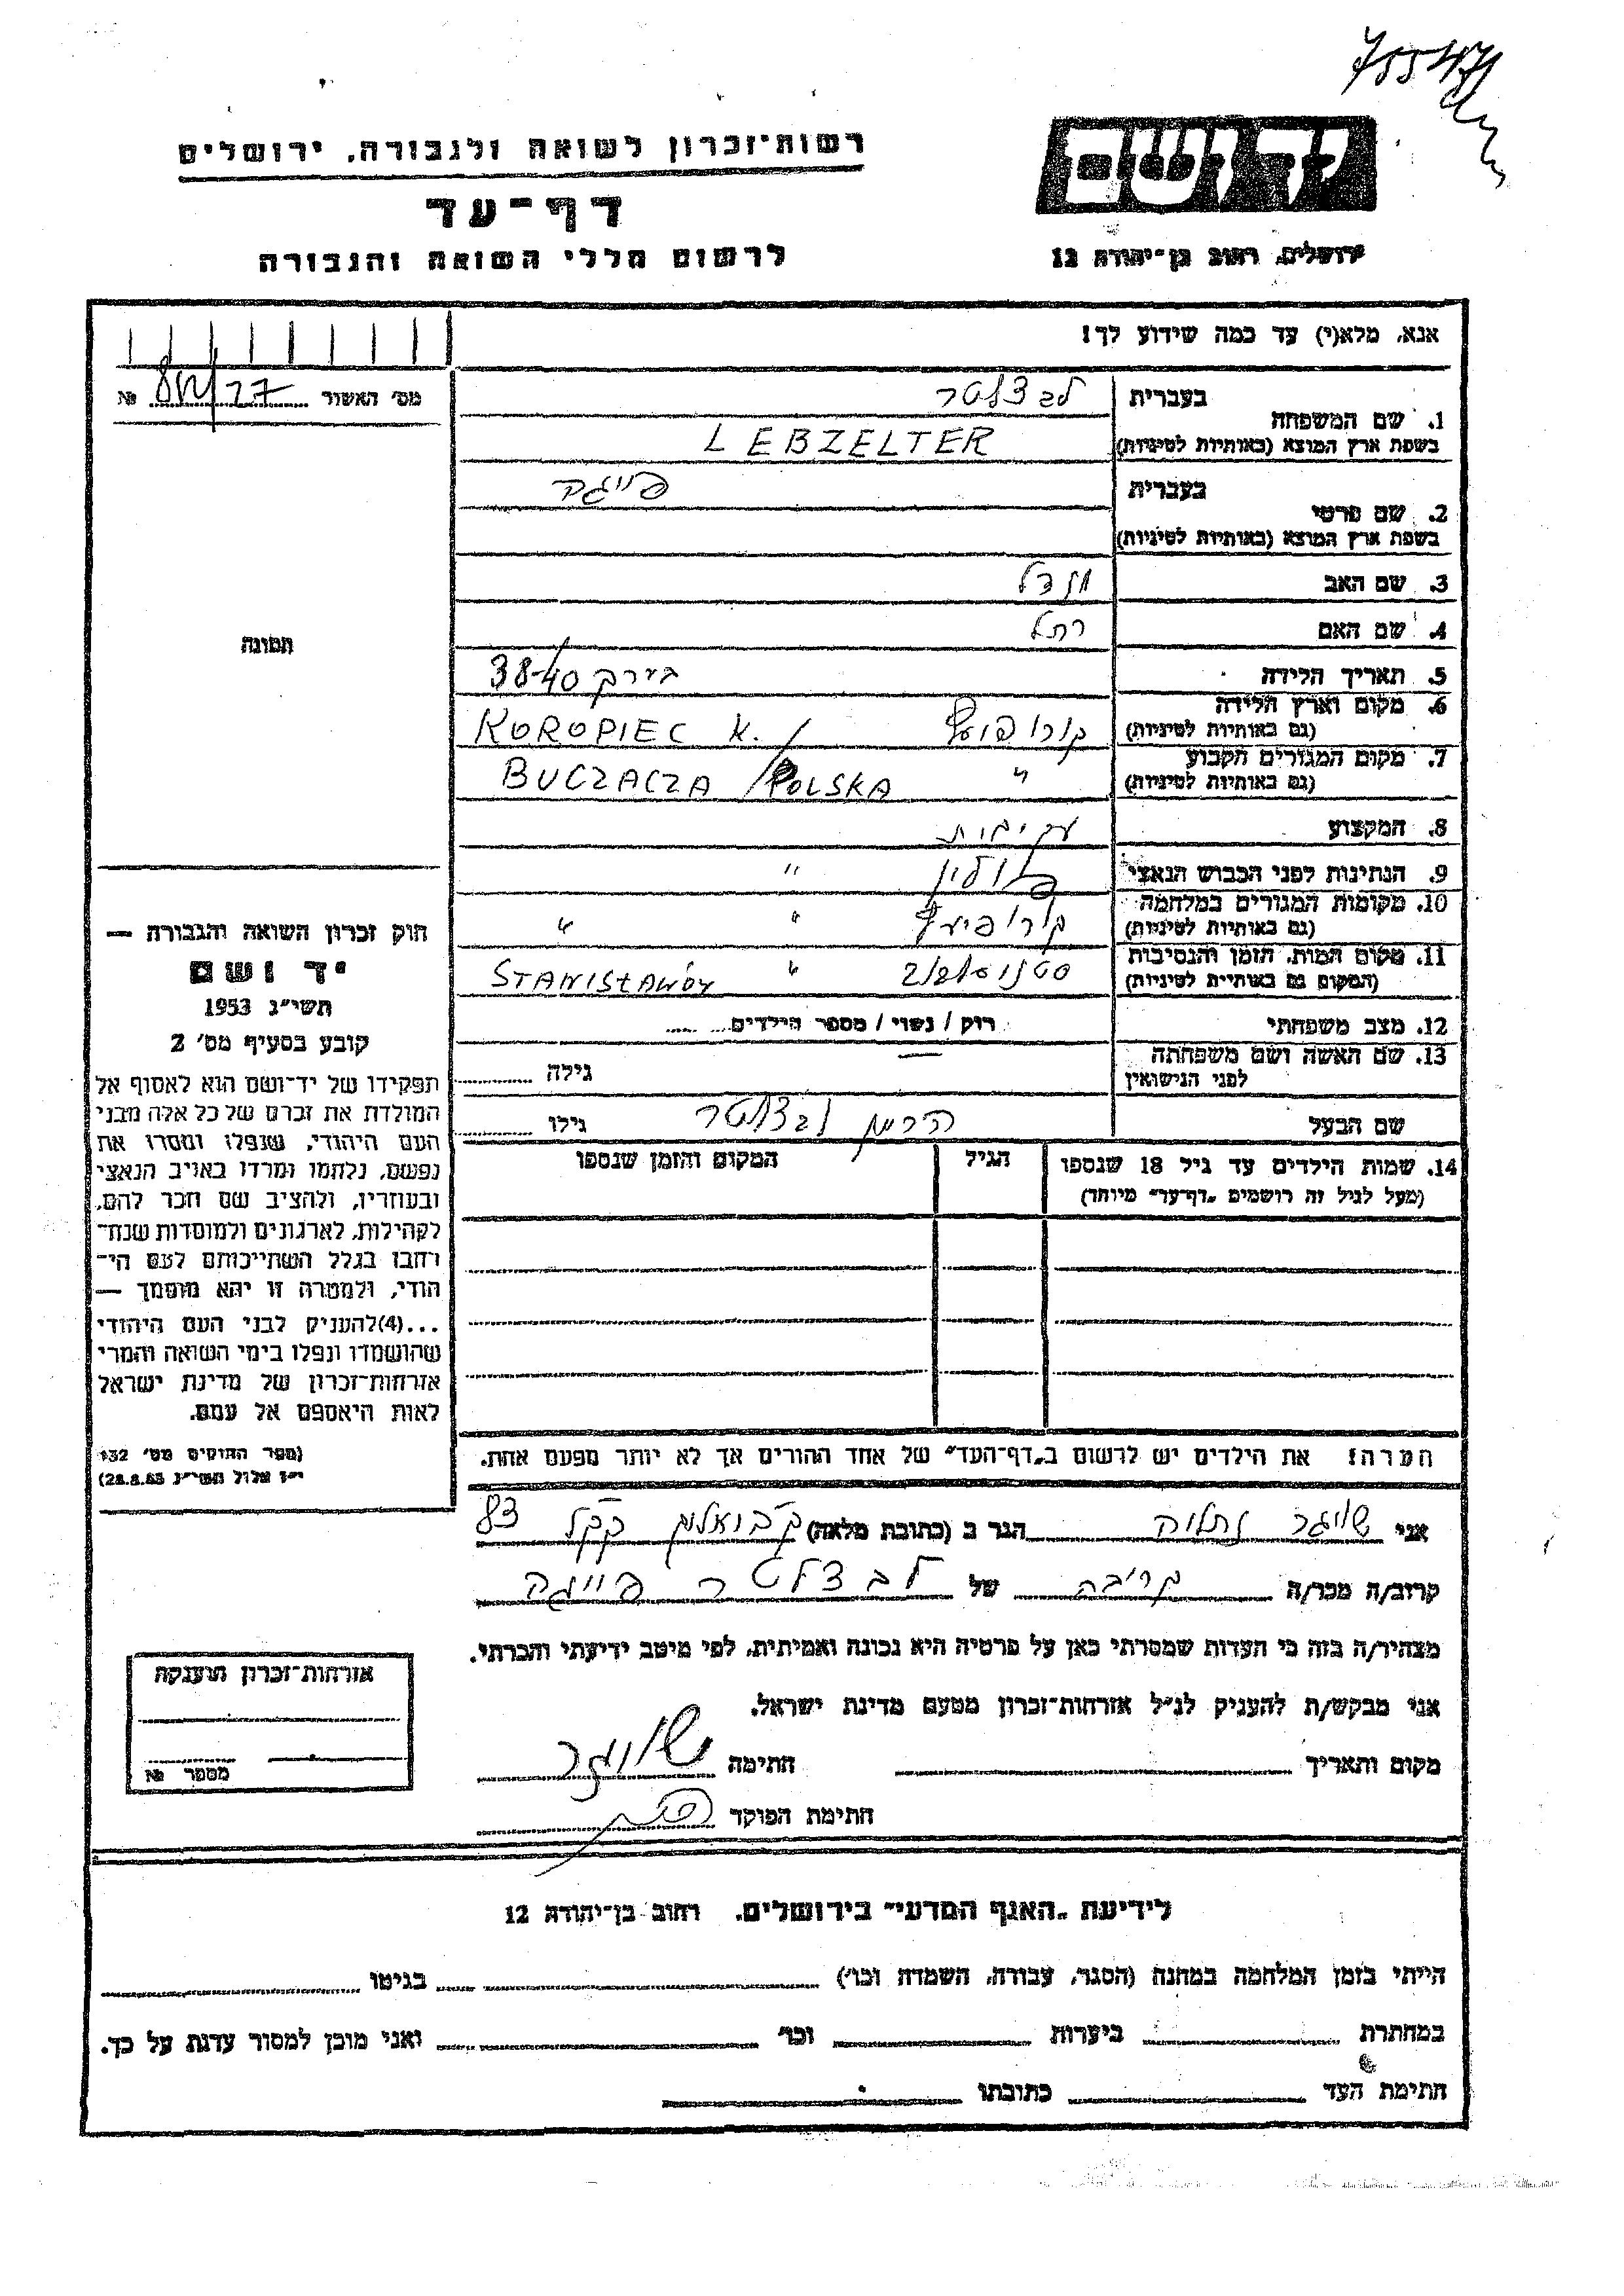 75547
רשות־זכרון לשואה ולגבורה, ירושלים
דף־עד
לרשום חללי השואה והגבורה
יד ושם
ירושלים, רחוב בן־יהודה 12
אנא, מלא(י) עד כמה שידוע לך!
מס׳ האשור 27 №
בעברית
1. שם המשפחה
בשפת ארץ המוצא (באותיות לטיניות)
לבצלטר
LEBZELTER
בעברית
2. שם פרטי
בשפת ארץ המוצא (באותיות לטיניות)
פייגה
3. שם האב
4. שם האם רחל
5. תאריך הלידה בערך 38-40
6. מקום וארץ הלידה
(גם באותיות לטיניות)
KOROPIEC K.
7. מקום המגורים הקבוע
(גם באותיות לטיניות)
" BUCZACZA / POLSKA
8. המקצוע עקרת בית
9. הנתינות לפני הכבוש הנאצי פולין "
10. מקומות המגורים במלחמה
(גם באותיות לטיניות)
" "
11. מקום המות, הזמן והנסיבות
(המקום גם באותיות לטיניות)
" STANISŁAWÓW
12. מצב משפחתי רוק / נשוי / מספר הילדים
13. שם האשה ושם משפחתה
לפני הנישואין
גילה
שם הבעל הרמן לבצלטר גילו
14. שמות הילדים עד גיל 18 שנספו
(מעל לגיל זה רושמים „דף־עד״ מיוחד)
הגיל
המקום והזמן שנספו
הערה! את הילדים יש לרשום ב„דף־העד״ של אחד ההורים אך לא יותר מפעם אחת.
תמונה
חוק זכרון השואה והגבורה —
יד ושם
תשי״ג 1953
קובע בסעיף מס׳ 2
תפקידו של יד־ושם הוא לאסוף אל
המולדת את זכרם של כל אלה מבני
העם היהודי, שנפלו ומסרו את
נפשם, נלחמו ומרדו באויב הנאצי
ובעוזריו, ולהציב שם וזכר להם,
לקהילות, לארגונים ולמוסדות שנח־
רחבו בגלל השתייכותם לעם הי־
הודי, ולמטרה זו יהא מוסמך —
...(4)להעניק לבני העם היהודי
שהושמדו ונפלו בימי השואה והמרי
אזרחות־זכרון של מדינת ישראל
לאות היאספם אל עמם.
(ספר החוקים מס׳ 132
י״ז אלול תשי״ג 28.8.53)
אני שוויגר הגר ב (כתובת מלאה) קקל 83
קרוב/ה מכר/ה קריבה של לבצלטר פייגה
מצהיר/ה בזה כי העדות שמסרתי כאן על פרטיה היא נכונה ואמיתית, לפי מיטב ידיעתי והכרתי.
אני מבקש/ת להעניק לנ״ל אזרחות־זכרון מטעם מדינת ישראל.
מקום ותאריך חתימה שוויגר
חתימת הפוקד
אזרחות־זכרון הוענקה
מספר №
לידיעת „האגף המדעי״ בירושלים, רחוב בן־יהודה 12
הייתי בזמן המלחמה במחנה (הסגר, עבודה, השמדה וכו׳) בגיטו
במחתרת ביערות וכו׳ ואני מוכן למסור עדות על כך.
חתימת העד כתובתו